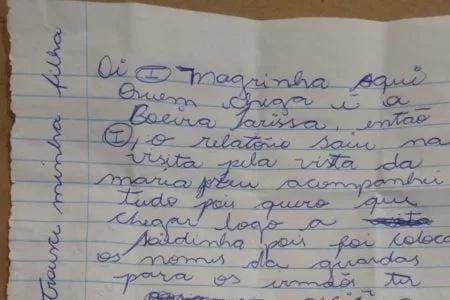 Oi I Magrinha Aqui
Quem chega é a
Boeira Larissa, então
I, o relatorio saiu na
visita pela vista da
maria eu acompanhei
tudo pois quero que
chegar logo a
Saidinha pois foi coloca
os nomes da guardas
para os irmãos ter
minha filha